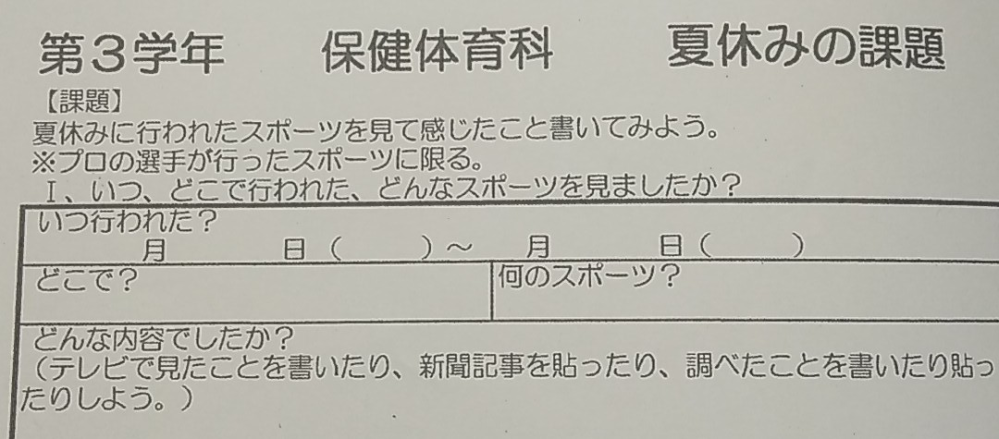 第3学年 保健体育科 夏休みの課題
【課題】
夏休みに行われたスポーツを見て感じたこと書いてみよう。
※プロの選手が行ったスポーツに限る。
Ⅰ、いつ、どこで行われた、どんなスポーツを見ましたか？
いつ行われた？
月 日（ ）～ 月 日（ ）
どこで？ 何のスポーツ？
どんな内容でしたか？
（テレビで見たことを書いたり、新聞記事を貼ったり、調べたことを書いたり貼っ
たりしよう。）